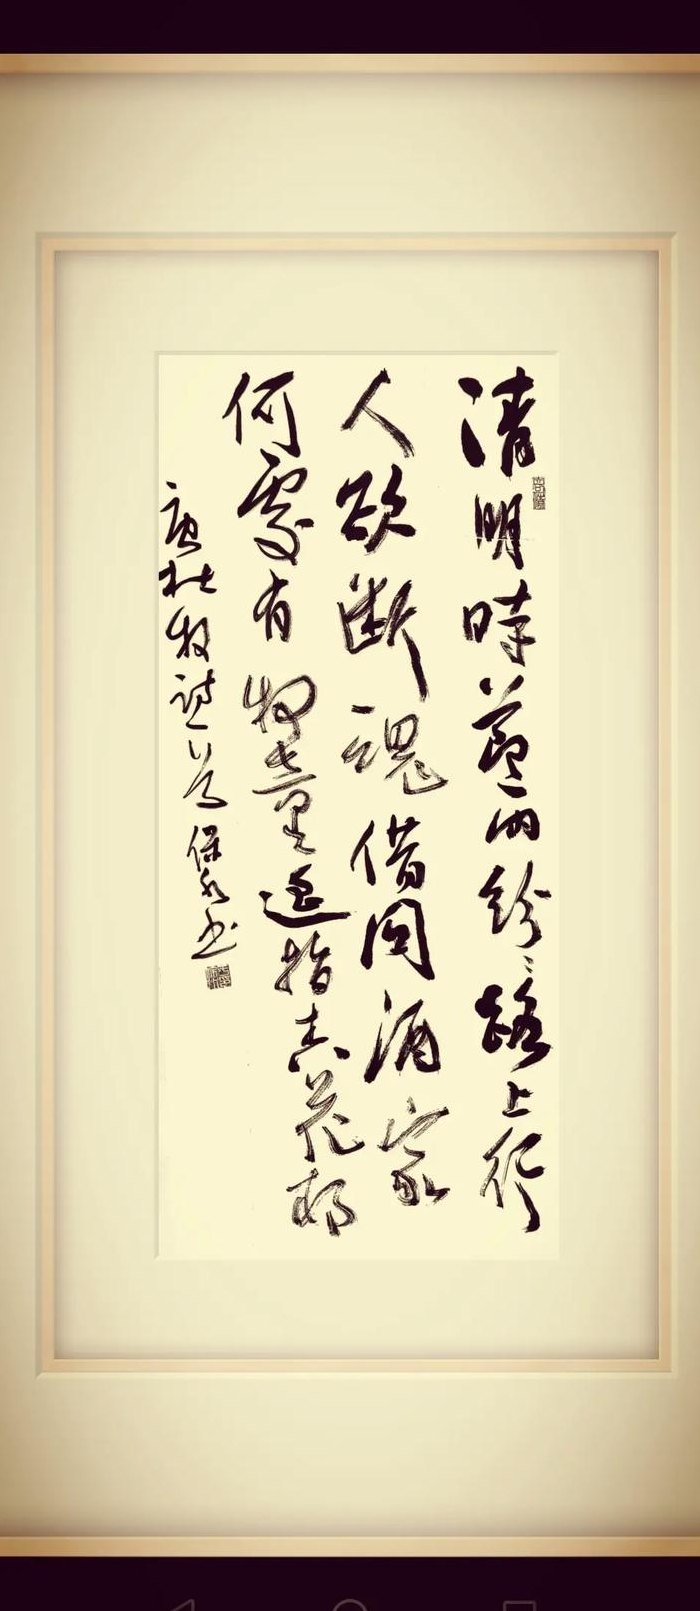 清明時節雨紛〻路上行
人欲断魂借問酒家
何處有牧童遥指杏花邨
唐杜牧詩一首保书